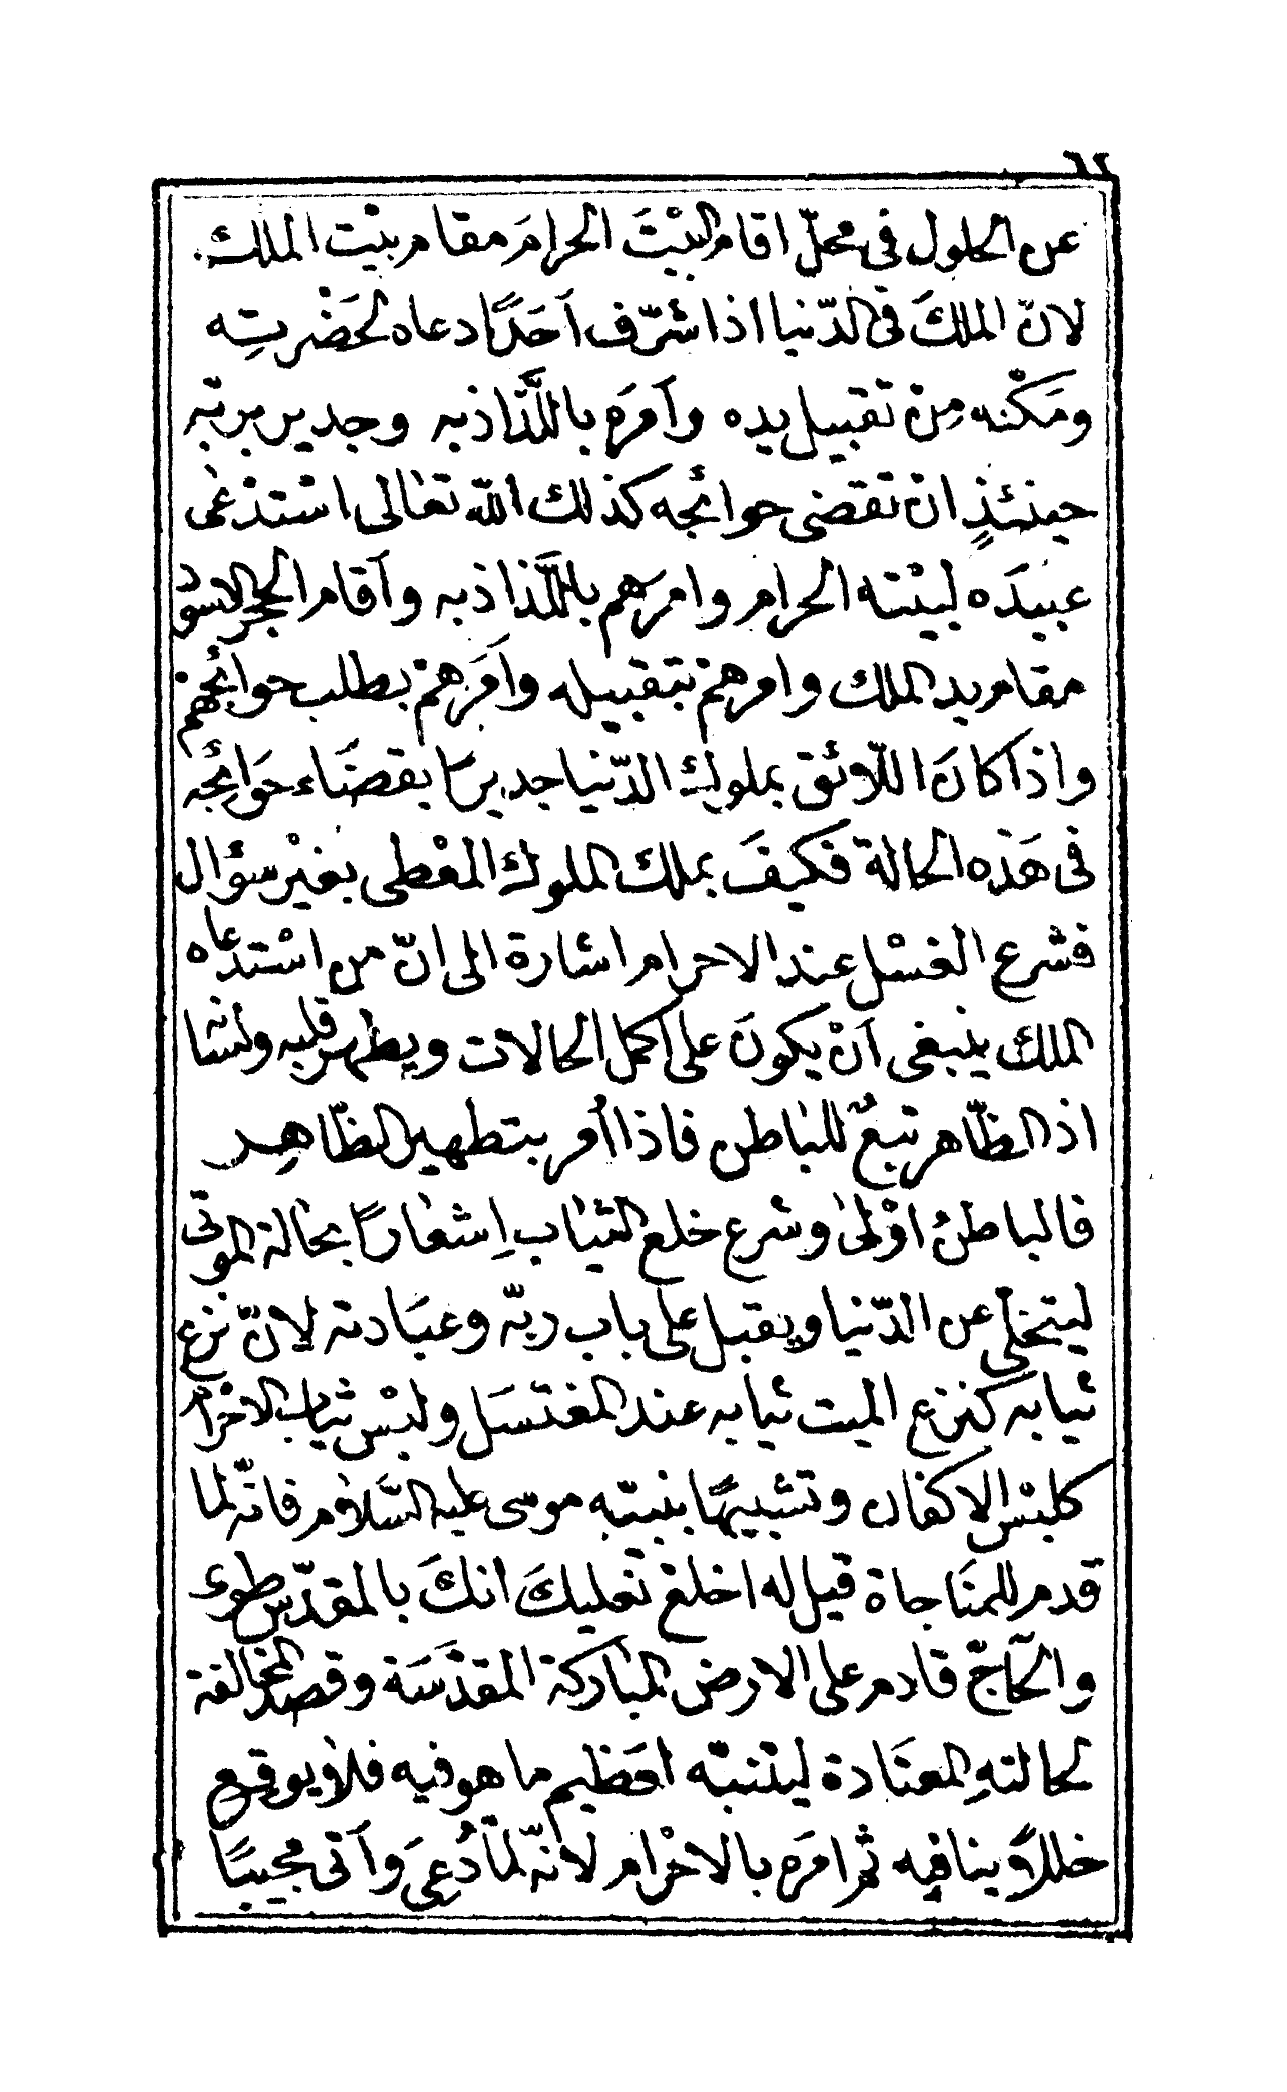 ٦٢
عن الحلول في محلّ اقام البيْتَ الحرامَ مقام بيْت الملك
لانّ الملكَ في الدّنيا اذا شرّف اَحَدًا دعاه لحَضْرتِه
ومَكْنه مِنْ تقبيل يده واَمرَه باللَّذاذبه وجدير بربّه
حينئذٍ انْ تقضى حوائجه كذلك الله تعالى اسْتدْعى
عبيدَه لبيْته الحرام وامرَهم باللَّذاذبه واَقام الحجر الاسود
مقام يد الملك وامرهمْ بتقبيله واَمَرَهمْ بطلب حوائجهمْ
واذا كانَ اللّائق بملوك الدّنيا جديرًا بقضَاء حَوائجه
في هَذه الحالة فكيفَ بملك الملوك المعْطى بغيْر سؤال
فشرع الغسْل عند الاحرام اشارة الى انّ من اسْتدعاه
الملك ينبغى اَنْ يكونَ على اَكمل الحالات ويطهر قلبه ولسَانه
اذ الظّاهر تبعٌ للبَاطن فاذا اُمر بتطهير الظّاهِر
فالباطنُ اوْلىٰ وشرع خلع الثيَاب اِشعَارًا بحَالة الموتىٰ
ليتخلّى عن الدّنيا ويقبل على باب ربّه وعبَادته لانّ نزع
ثيابه كنزع الميت ثيابه عند المغتسَل ولبْس ثياب الاحْرَام
كلبْس الاكفان وتشبيهًا بنبيّه موسى عليه السَّلام فانّه لما
قدم للمنَاجاة قيل له اخلعْ نعليكَ انكَ بالمقدّس طوى
والحَّاجّ قادم على الارض المبَاركة المقدّسَة وقصد المخالفة
لحالتهِ المعتَادة ليتنبّه لعَظيم ما هو فيه فلا يوقع
خللاً ينافيه ثم امرَه بالاحْرام لانّه لمّا دُعىَ واَتى مجيبًا